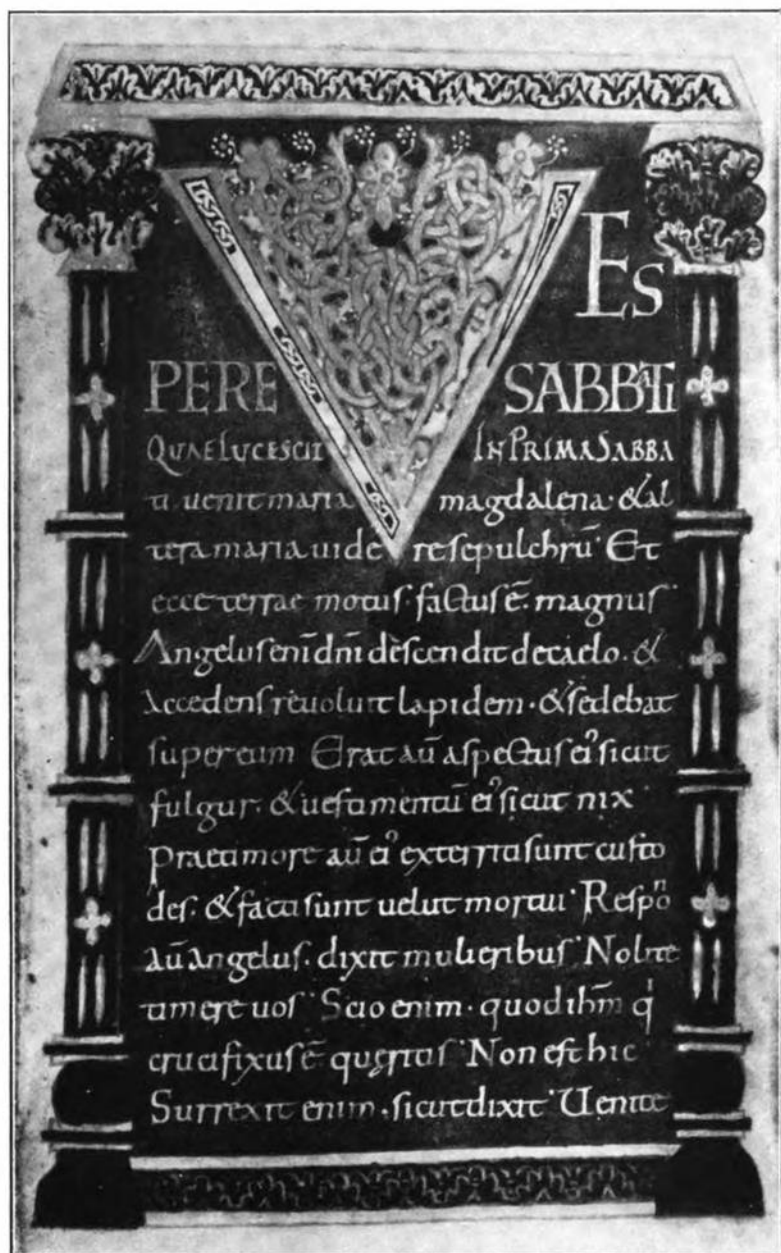 VEs
PERE SABBATI
QUAE LUCESCIT IN PRIMA SABBA
ti uenit maria magdalena· & al
tera maria uide re sepulchrū· Et
ecce terrae motus· factus ē· magnus·
Angelus eni᷄ dn̄i descendit de caelo· &
Accedens reuoluit lapidem· & sedebat
super eum Erat aū aspectus ei᾽ sicut
fulgur· & uestimentū ei᾽ sicut nix·
Prae timore aū ei᾽ exterriti sunt custo
des· & facti sunt uelut mortui· Respōn
aū angelus· dixit mulieribus· Nolite
timere uos· Scio enim· quod ih̄m qͥ
crucifixus ē queritis· Non est hic
Surrexit enim· sicut dixit· Uenite